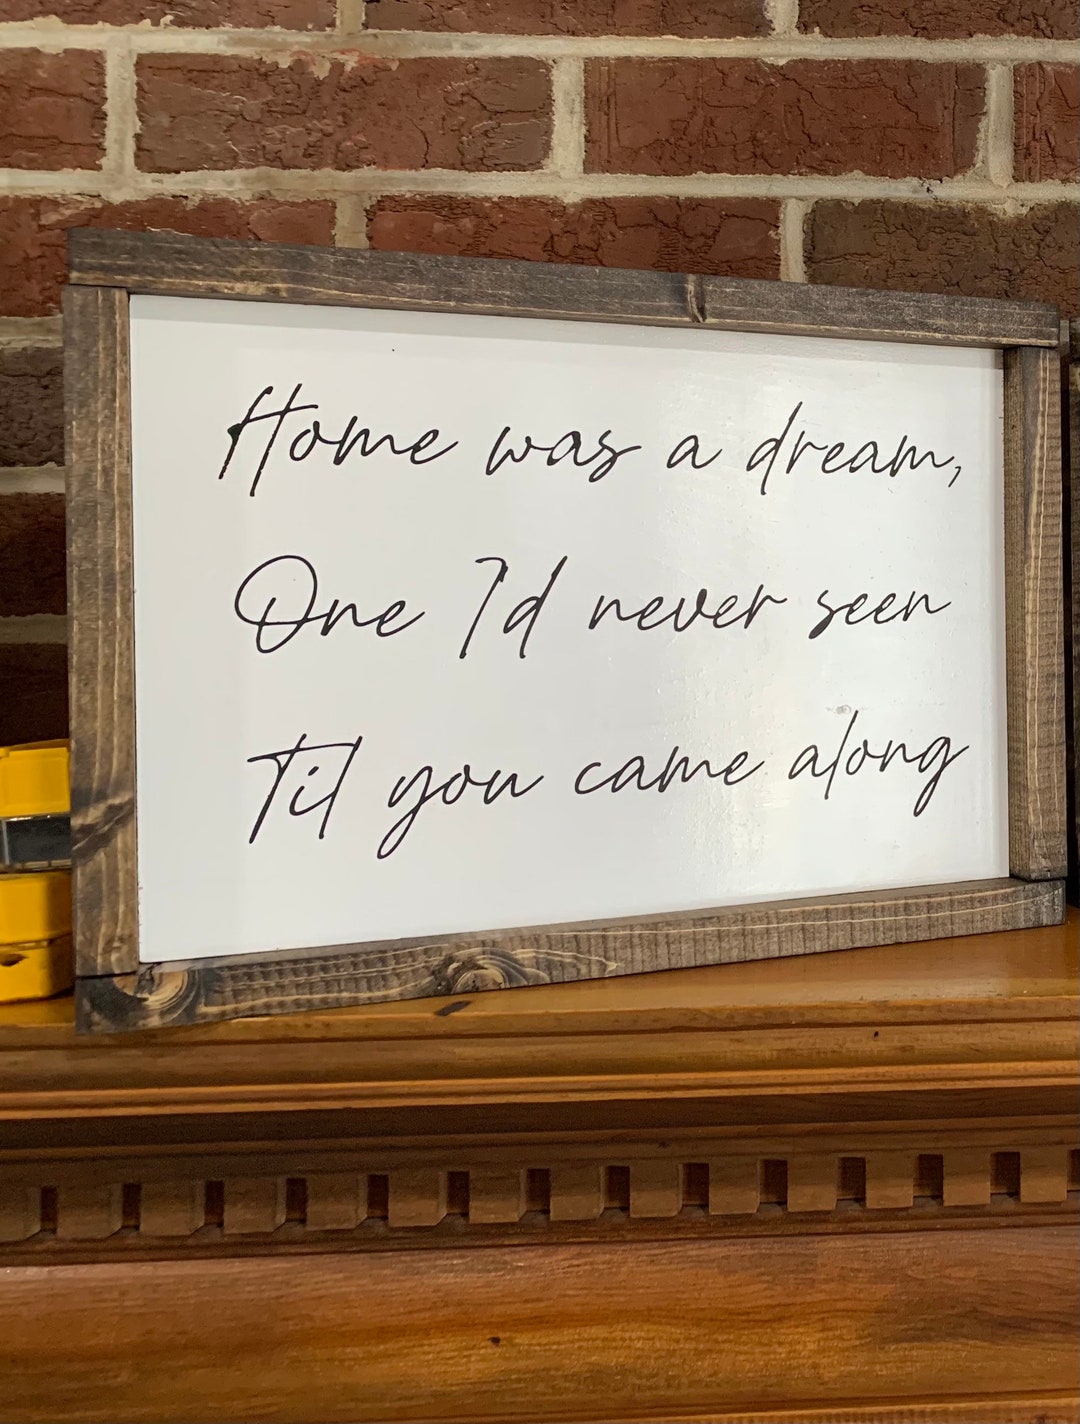 Home was a dream,
One I'd never seen
Til you came along